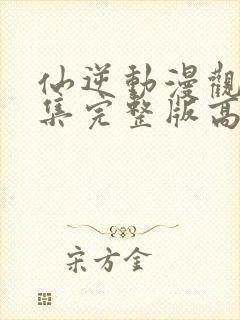 仙逆動漫觀
集完整版高
宋方金